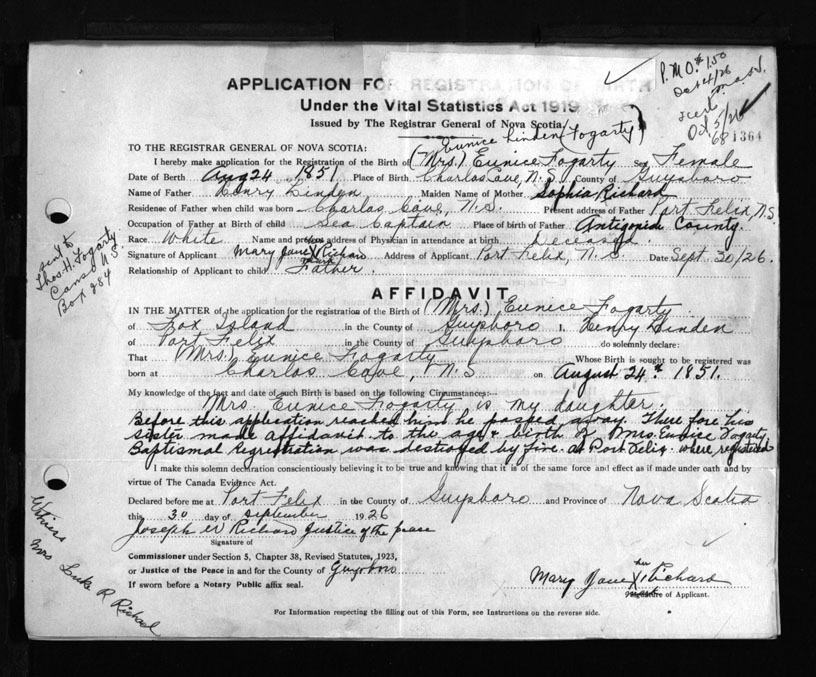 P.M.O. $1.50
Oct 4/26
Oct 5/26
681364
APPLICATION FOR REGISTRATION OF BIRTH
Under the Vital Statistics Act 1919
Issued by The Registrar General of Nova Scotia
Eunice Linden (Fogarty)
TO THE REGISTRAR GENERAL OF NOVA SCOTIA:
I hereby make application for the Registration of the Birth of (Mrs.) Eunice Fogarty Sex Female
Date of Birth Aug 24, 1851 Place of Birth Charlos Cove, N.S. County of Guysboro
Name of Father Henry Linden Maiden Name of Mother Sophia Richard
Residense of Father when child was born Charlos Cove, N.S. Present address of Father Port Felix, N.S.
Occupation of Father at Birth of child Sea Captain Place of birth of Father Antigonish County.
Race White Name and present address of Physician in attendance at birth Deceased
Signature of Applicant Mary Jane X Richard Address of Applicant Port Felix, N.S. Date Sept. 30/26.
her
mark
Relationship of Applicant to child Father.
sent to
Thos. H. Fogarty
Canso N.S.
Box 284
AFFIDAVIT
IN THE MATTER of the application for the registration of the Birth of (Mrs.) Eunice Fogarty
of Fox Island in the County of Guysboro I, Henry Linden
of Port Felix in the County of Guysboro do solemnly declare:
That Mrs. Eunice Fogarty Whose Birth is sought to be registered was
born at Charlos Cove, N.S on August 24th 1851.
My knowledge of the fact and date of such Birth is based on the following Circumstances:—
Mrs. Eunice Fogarty is my daughter.
Before this application reached him he passed away. There fore his
sister made affidavit to the age & birth of Mrs. Eunice Fogarty
Baptismal Registration was destroyed by fire. at Port Felix. where registered
I make this solemn declaration conscientiously believing it to be true and knowing that it is of the same force and effect as if made under oath and by
virtue of The Canada Evidence Act.
Declared before me at Port Felix in the County of Guysboro and Province of Nova Scotia
this 30 day of September 1926
Joseph W Richard Justice of the peace
Signature of
Commissioner under Section 5, Chapter 38, Revised Statutes, 1923,
or Justice of the Peace in and for the County of Guysboro
If sworn before a Notary Public affix seal.
her
Mary Jane X Richard
Signature of Applicant.
Witness
Mrs Luke R Richard
For Information respecting the filling out of this Form, see Instructions on the reverse side.